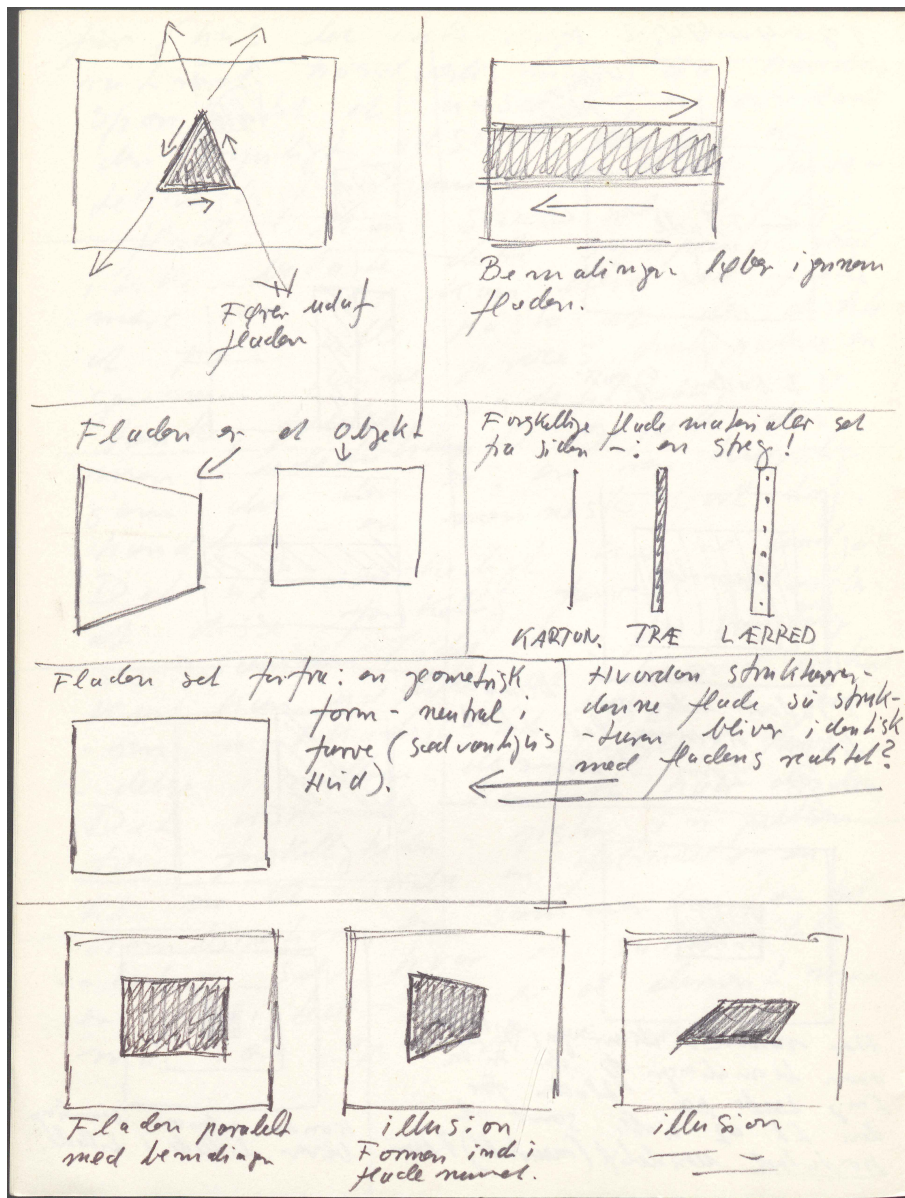 Fører ud af
fladen
Bemalingen løber igennem
fladen.
Fladen er et objekt
Forskellige flade materialer set
fra siden -: en streg!
KARTON. TRÆ LÆRRED
Fladen set forfra: en geometrisk
form - neutral i
farve (sædvanligvis
Hvid).
Hvordan struktureres
denne flade så struk-
-turen bliver identisk
med fladens realitet?
Fladen paralelt
med bemalingen
illusion
Formen ind i
flade rummet.
illusion